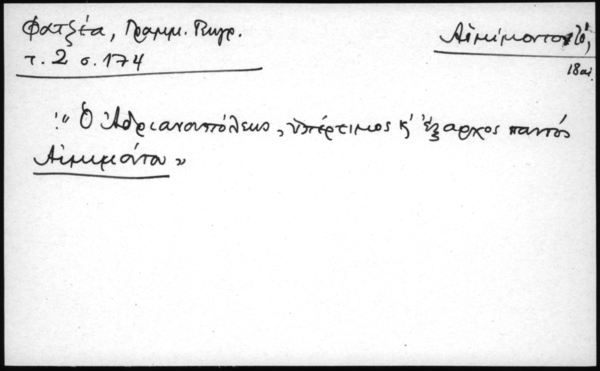 Φατζέα, Γραμμ. Γεωγρ.
τ. 2 σ. 174
Αἱμίμοντο, τό,
18 αἰ.
:" Ὁ Ἀδριανουπόλεως, ὑπέρτιμος κ' ἔξαρχος παντός
Αἱμιμόντου"